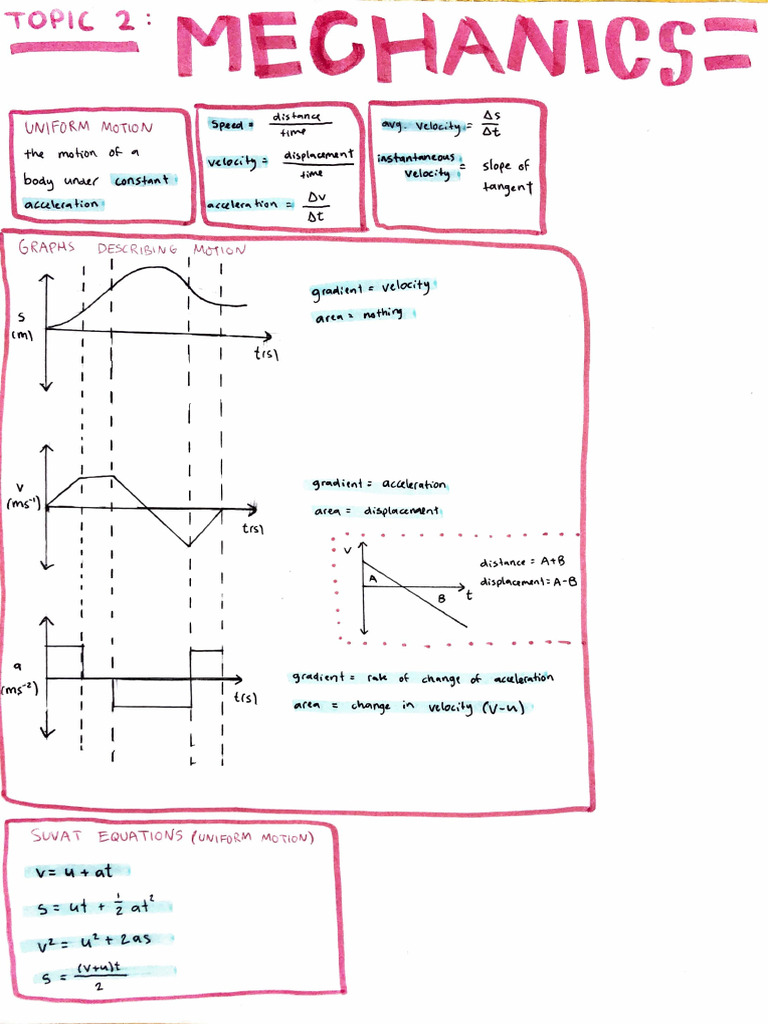 TOPIC 2: MECHANICS
UNIFORM MOTION
the motion of a
body under constant
acceleration
speed = distance/time
velocity = displacement/time
acceleration = Δv/Δt
avg. velocity = Δs/Δt
instantaneous velocity = slope of tangent
GRAPHS DESCRIBING MOTION
s
(m)
t(s)
gradient = velocity
area = nothing
v
(ms⁻¹)
t(s)
gradient = acceleration
area = displacement
v
A
B
t
distance = A+B
displacement = A-B
a
(ms⁻²)
t(s)
gradient = rate of change of acceleration
area = change in velocity (v-u)
SUVAT EQUATIONS (UNIFORM MOTION)
v = u + at
s = ut + ½ at²
v² = u² + 2as
s = (v+u)t/2